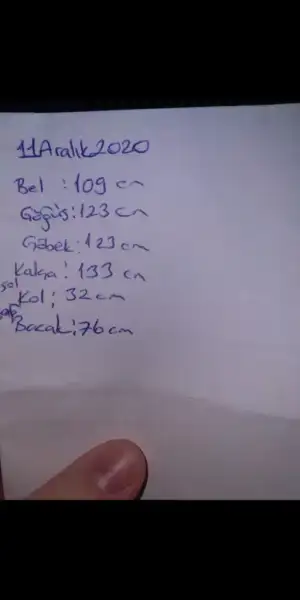 11 Aralık 2020
Bel : 109 cm
Göğüs : 123 cm
Göbek : 123 cm
Kalça : 133 cm
sol Kol : 32 cm
Bacak : 76 cm